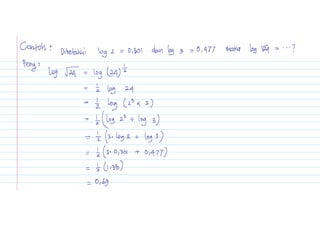 Contoh : Diketahui log 2 = 0,301 dan log 3 = 0,477 maka log √24 = ... ?
Peny :
log √24 = log (24)^½
= ½ log 24
= ½ log (2³ × 3)
= ½ (log 2³ + log 3)
= ½ (3. log 2 + log 3)
= ½ (3. 0,301 + 0,477)
= ½ (1,38)
= 0,69